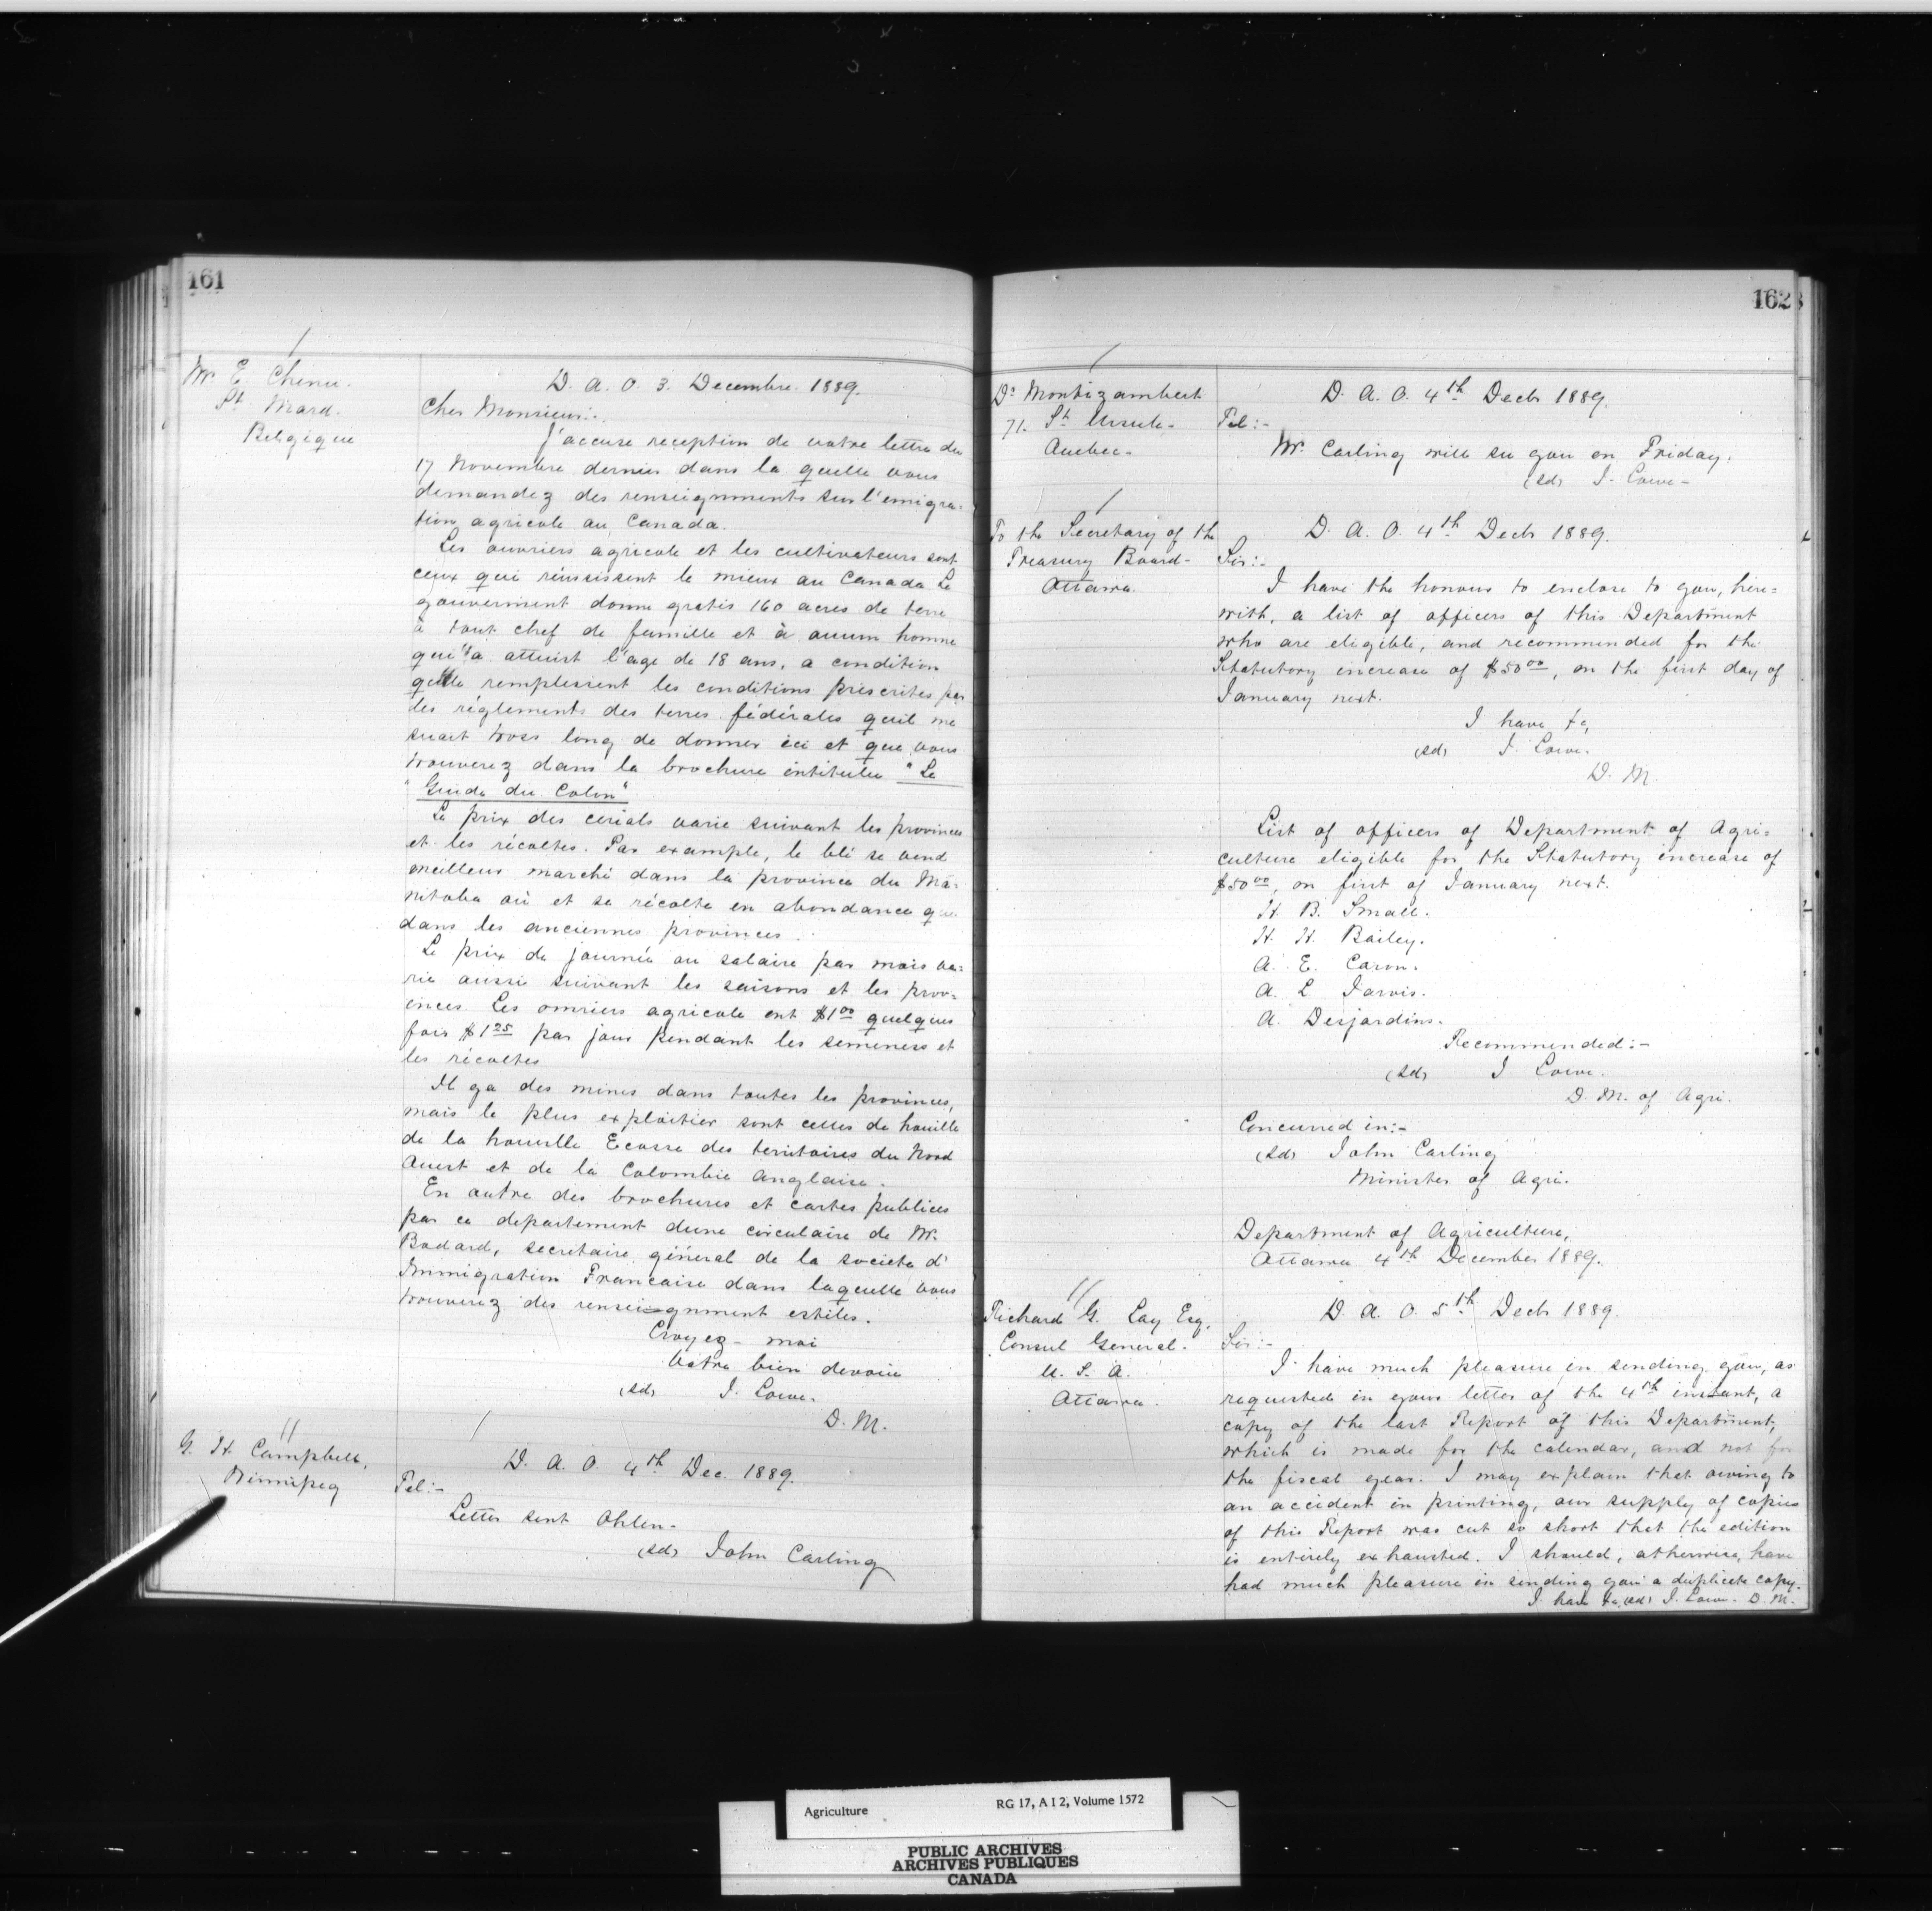 161
Mr. E. Chenu.
St Mard.
Belgique
D. A. O. 3. Decembre. 1889.
Cher Monsieur:.
J'accuse reception de votre lettre du
17 Novembre dernier dans la quelle vous
demandez des renseignments sur l'emigra-
tion agricole au Canada.
Les ouvriers agricole et les cultivateurs sont
ceux qui réussissent le mieux au Canada Le
gouverment donne gratis 160 acres de terre
à tout chef de famille et à aucum homme
qui a atteint l'age de 18 ans, a condition
remplessent les conditions prescrites par
les réglements des terres fédérales quil me
serait trops long de donner ici et que vous
trouverez dans la brochure intitulée "Le
"Guide du Colon"
Le prix des cerials varie suivant les provinces
et les récoltes. Par example, le blé se vend
meilleur marché dans la province du Ma-
nitoba où et se récolte en abondance que
dans les anciennes provinces.
Le prix de journée au salaire par mois va-
rie aussi suivant les saisons et les prov-
inces. Les omriers agricole ont $1.00 quelques
fois $1.25 par jour pendant les semeners et
les récoltes
Il ya des mines dans toutes les provinces,
mais le plus exploitier sont celles de houille
de la houvlle Écosse des territoires du Nord
Ouest et de la Colombie Anglaise.
En outre des brochures et cartes publices
par ce departement dune circulaire de Mr.
Bodard, secretaire général de la societe d'
Immigration Francaise dans laquelle vous
trouverez des renseignment estiles.
Croyez-moi
Votre bien devouie
(sd) J. Lowe.
D. M.
G. H. Campbell,
Winnipeg
D. A. O. 4th Dec. 1889.
Tel:-
Letter sent Ohlen-
(sd) John Carling
162
Dr Montizambert
71. St Ursule-
Quebec-
D. A. O. 4th Decb 1889.
Tel:-
Mr. Carling will see you on Friday.
(sd) J. Lowe-
To the Secretary of the
Treasury Board-
Ottawa.
D. A. O. 4th Decb 1889.
Sir:-
I have the honour to enclose to you, here=
with, a list of officers of this Department
who are eligible, and recommended for the
Statutory increase of $50.00, on the first day of
January next.
I have &c,
(sd) J. Lowe.
D. M.
List of officers of Department of Agri=
culture eligible for the Statutory increase of
$50.00, on first of January next.
H. B. Small.
H. H. Bailey.
A. E. Caron.
A. L. Jarvis.
A. Desjardins.
Recommended:-
(sd) J Lowe.
D. M. of Agri.
Concurred in:-
(sd) John Carling
Minister of Agri.
Department of Agriculture,
Ottawa 4th December 1889.
Richard G. Lay Esq.
Consul General.
U. S. A.
Ottawa.
D. A. O. 5th Decb 1889.
Sir:-
I have much pleasure in sending you, as
requested in your letter of the 4th instant, a
copy of the last Report of this Department,
which is made for the calendar, and not for
the fiscal year. I may explain that owing to
an accident in printing, our supply of copies
of this Report was cut so short that the edition
is entirely exhausted. I should, otherwise, have
had much pleasure in sending you a duplicate copy.
I have &c (sd) J. Lowe- D. M.
Agriculture RG 17, A I 2, Volume 1572
PUBLIC ARCHIVES
ARCHIVES PUBLIQUES
CANADA